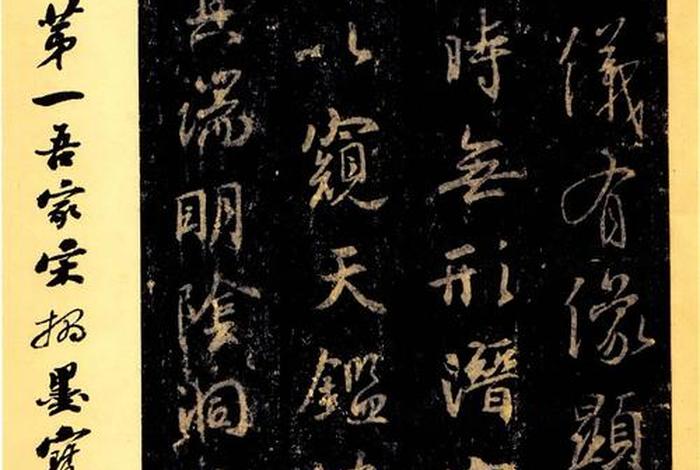 儀有像顯
時無形潛
以窺天鑑
其端明陰洞
苐一吾家宋搨墨寶